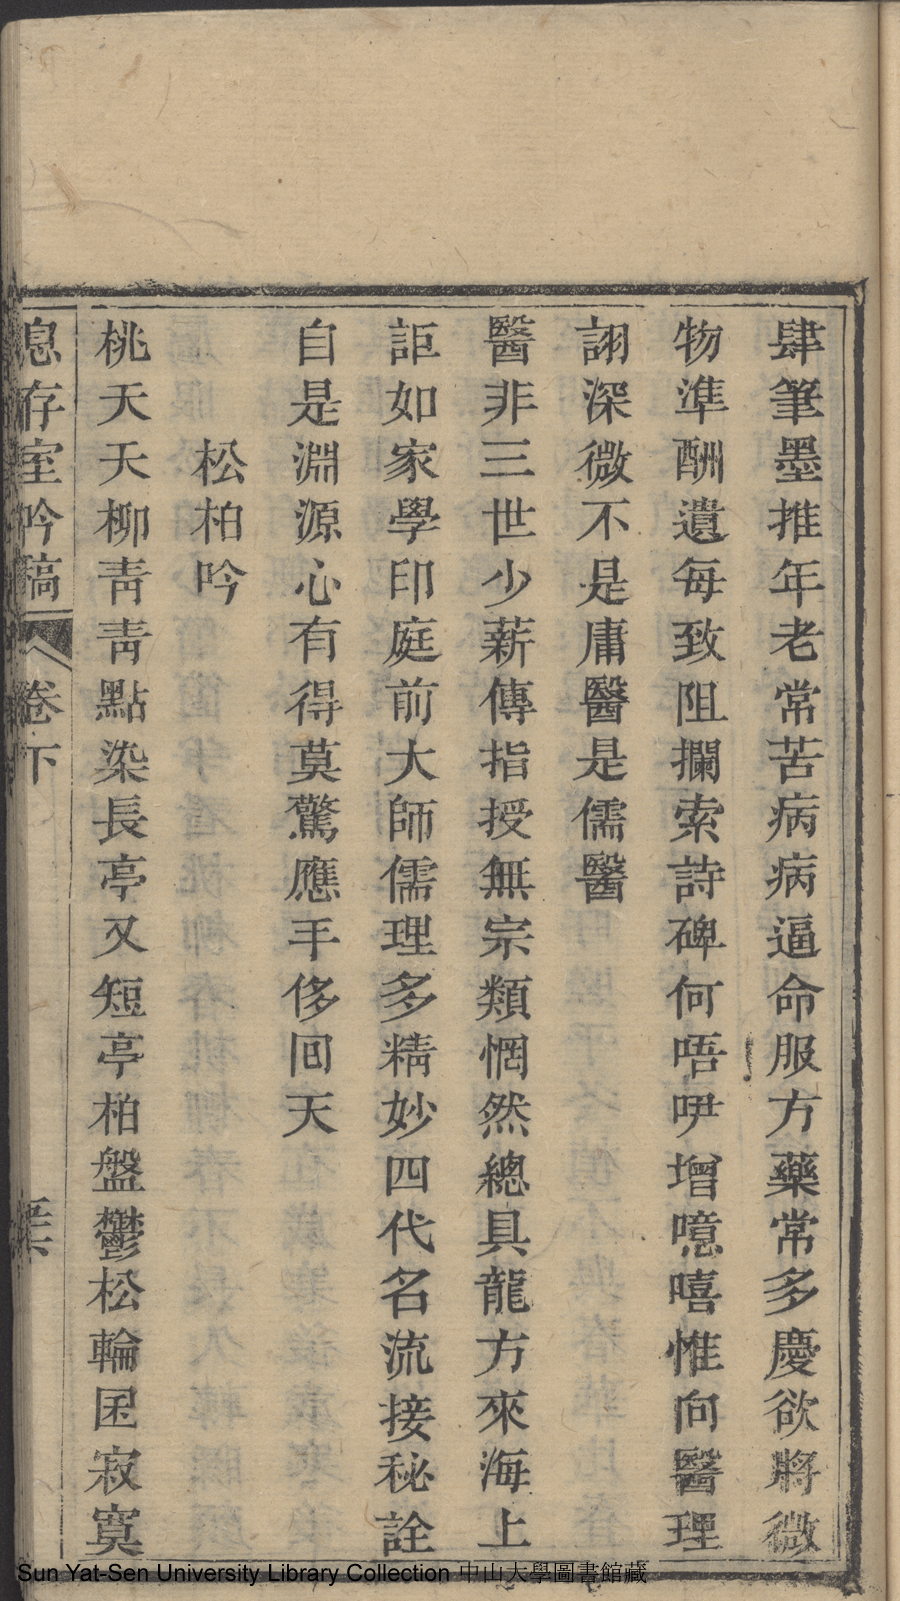 肆筆墨推年老常苦病病逼命服方藥常多慶欲將微
物準酬遺每致阻攔索詩碑何唔吚增噫嘻惟向醫理
詡深微不是庸醫是儒醫
醫非三世少薪傳指授無宗類惘然總具龍方來海上
詎如家學印庭前大師儒理多精妙四代名流接秘詮
自是淵源心有得莫驚應手侈回天
松柏吟
桃夭夭柳青青點染長亭又短亭柏盤鬱松輪囷寂寞
息存室吟稿 卷下
Sun Yat-Sen University Library Collection 中山大學圖書館藏